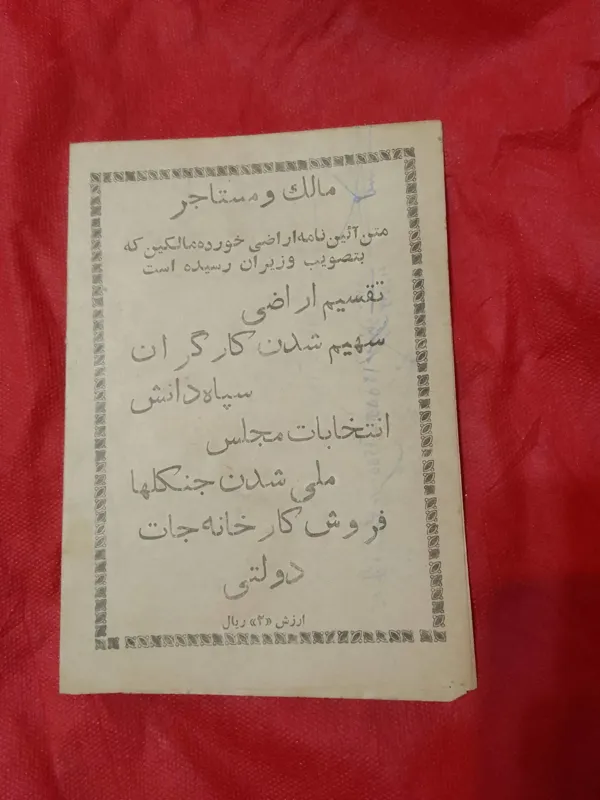 مالك و مستاجر
متن آئین نامه اراضی خورده مالکین که
بتصویب وزیران رسیده است
تقسیم اراضی
سهیم شدن کارگران
سپاه دانش
انتخابات مجلس
ملی شدن جنکلها
فروش کارخانه جات
دولتی
ارزش «۲» ریال